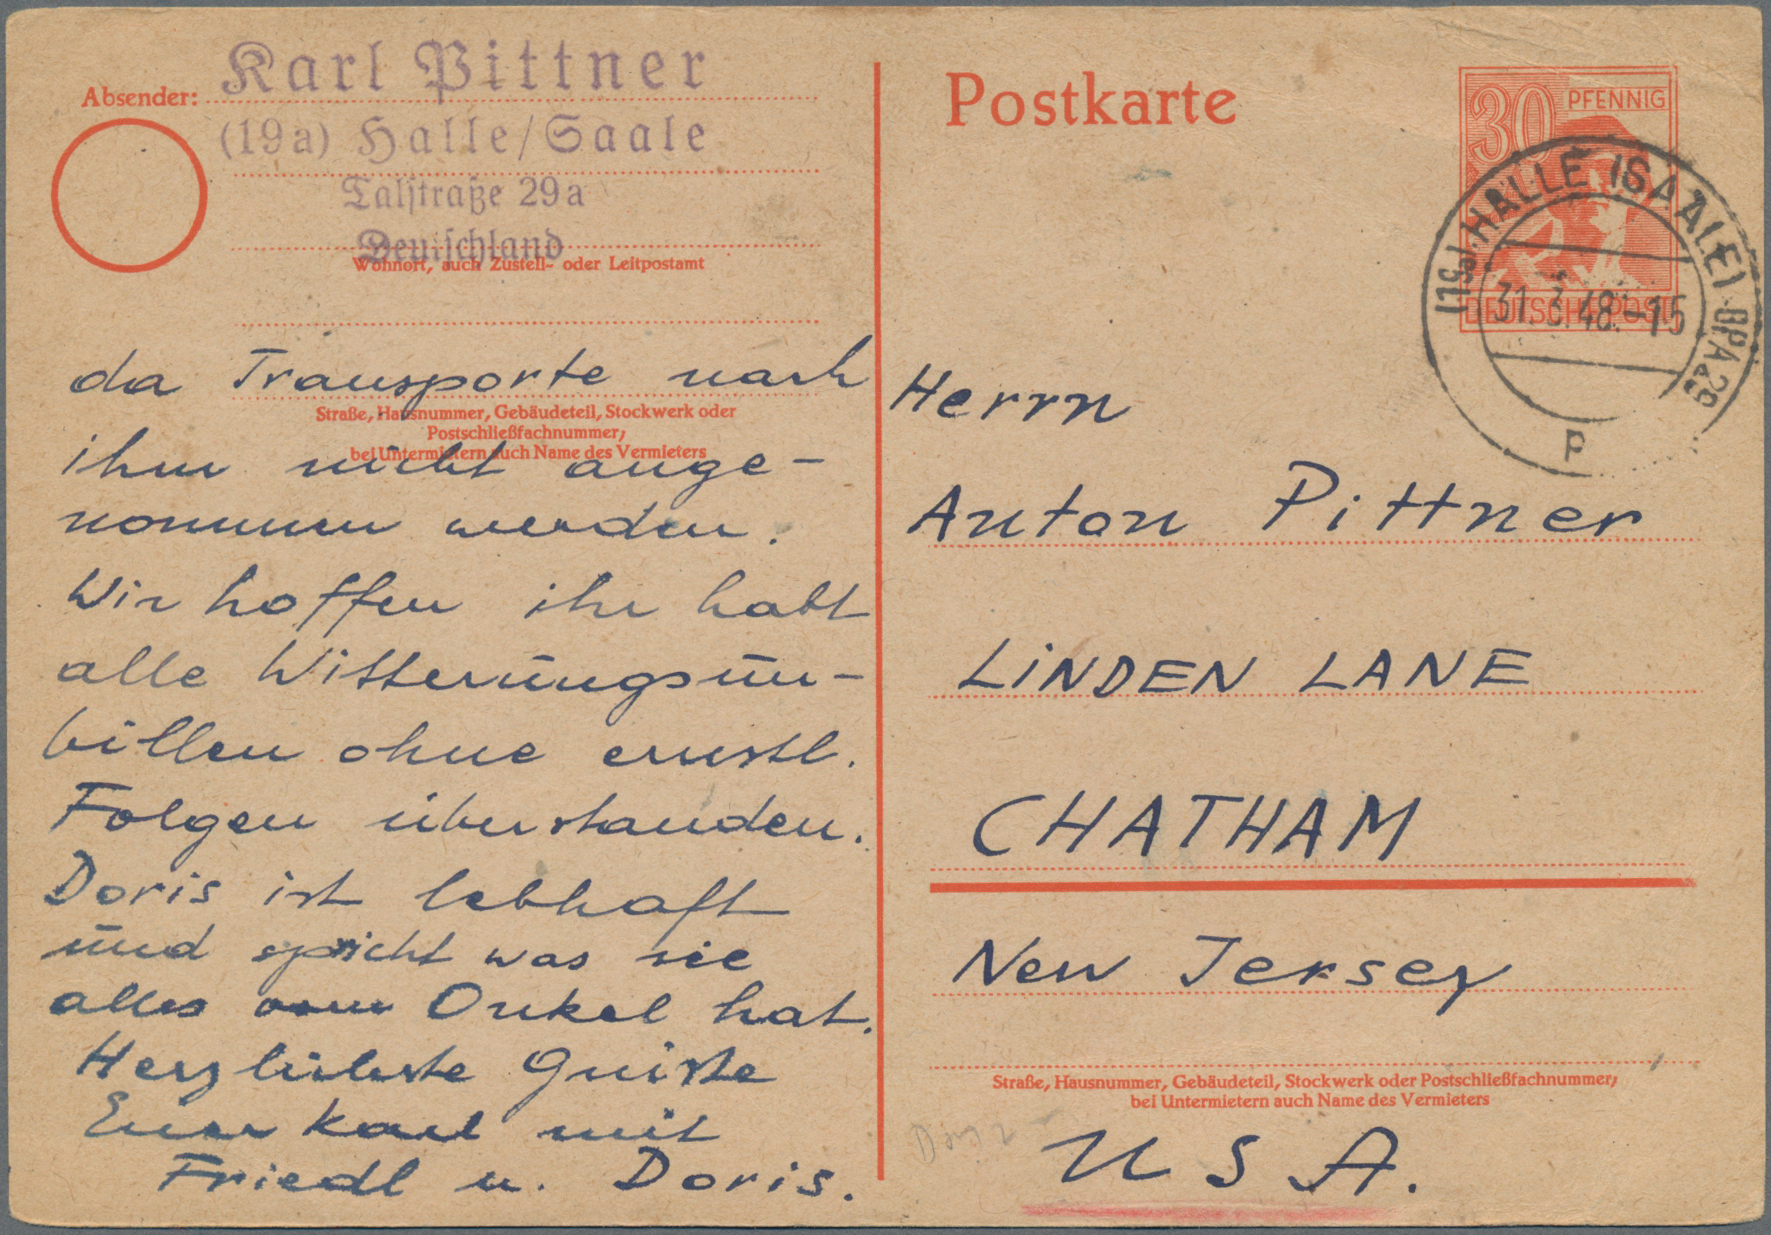 Absender:
Karl Pittner
(19a) Halle/Saale
Talstraße 29a
Deutschland
Wohnort, auch Zustell- oder Leitpostamt
Straße, Hausnummer, Gebäudeteil, Stockwerk oder
Postschließfachnummer,
bei Untermietern auch Name des Vermieters
da Transporte nach
ihm nicht ange-
nommen werden.
Wir hoffen ihr habt
alle Witterungsun-
billen ohne ernstl.
Folgen überstanden.
Doris ist lebhaft
und spricht was sie
alles vom Onkel hat.
Herzlichste Grüsse
Euer Karl mit
Friedl u. Doris.
Postkarte
30 PFENNIG
DEUTSCHE POST
(19a) HALLE (SAALE) BPA 29
31.3.48.-15
P
Herrn
Anton Pittner
LINDEN LANE
CHATHAM
New Jersey
Straße, Hausnummer, Gebäudeteil, Stockwerk oder Postschließfachnummer,
bei Untermietern auch Name des Vermieters
USA.